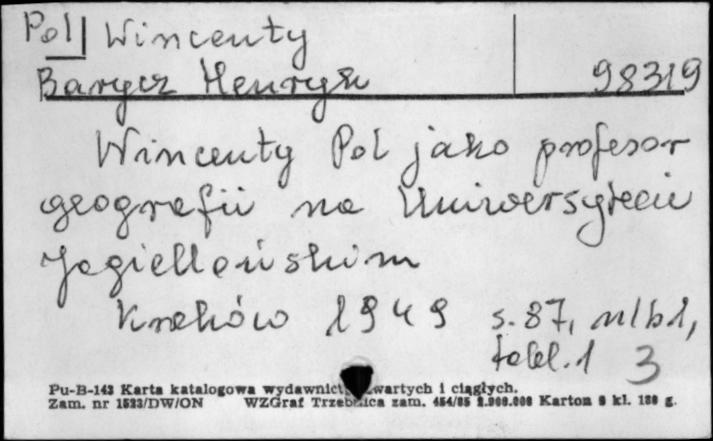 Pol Wincenty
Barycz Henryk 98319
Wincenty Pol jako profesor
geografii na Uniwersytecie
Jagiellońskim
Kraków 1949 s. 87, nlb 1,
tabl. 1 3
Pu-B-143 Karta katalogowa wydawnict zwartych i ciągłych.
Zam. nr 1523/DW/ON WZGraf Trzebnica zam. 454/85 2.000.000 Karton 8 kl. 180 g.